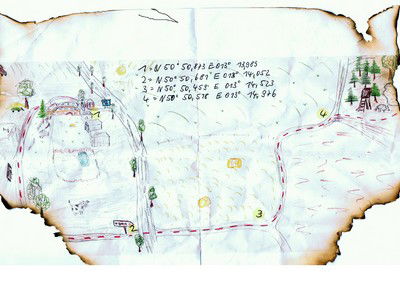 1 = N 50° 50,873 E 013° 13,983
2 = N 50° 50,681 E 013° 14,052
3 = N 50° 50,453 E 013° 14,523
4 = N 50° 50,578 E 013° 14,976
1
4
3
2